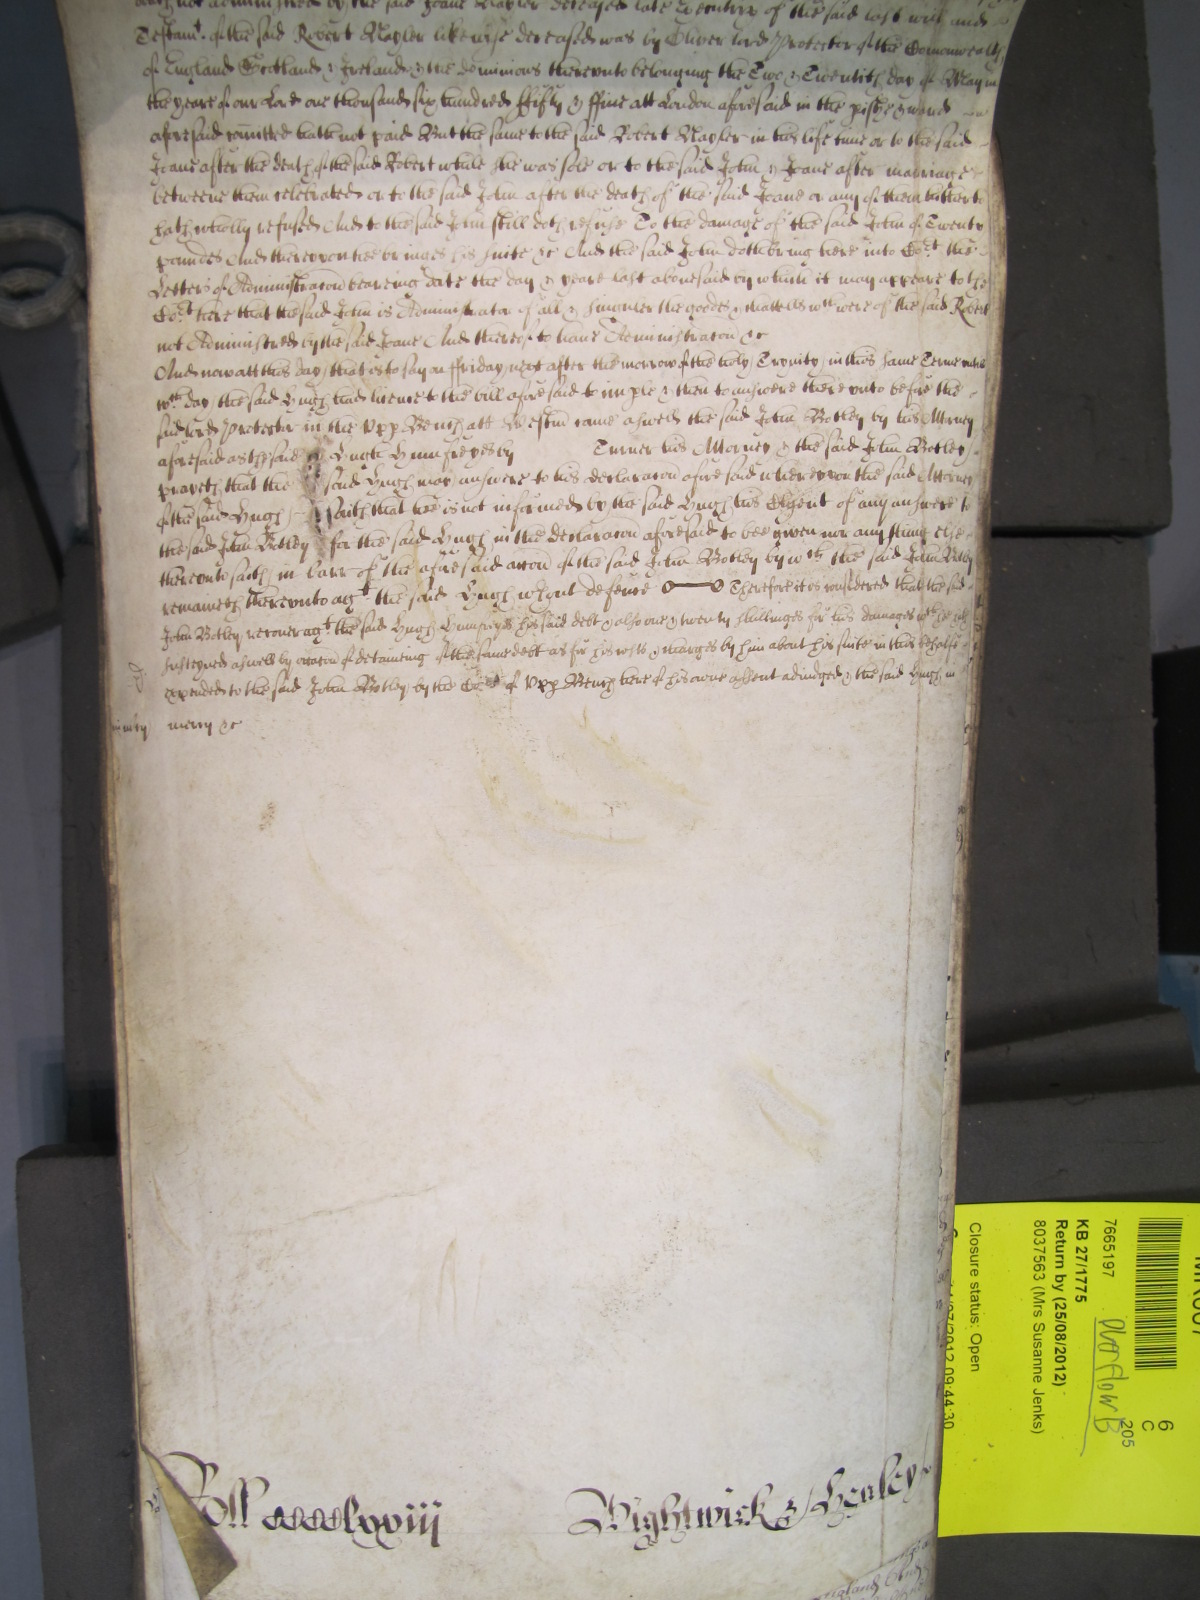 not administred by the said Joane Nayler deceased late Executrix of the said last will and
Testamt. of the said Robert Nayler likewise deceased was by Oliver lord Protector of the Comonwealth
of England Scotland & Ireland & the dominions therevnto belonging the Two & Twentith day of May in
the yeare of our Lord one thousand six hundred ffifty & ffiue att London aforesaid in the pishe & ward
aforesaid comitted hath not paid But the same to the said Robert Nayler in his life time or to the said
Joane after the death of the said Robert while she was sole or to the said John & Joane after marriage
betweene them celebrated or to the said John after the death of the said Joane or any of them hitherto
hath wholly refused And to the said John still doth refuse To the damage of the said John of Twenty
poundes And therevpon hee bringes his suite &c And the said John doth bring here into Cort. the
Letters of Administracon beareing date the day & yeare last abouesaid by which it may appeare to the
Cort. here that the said John is Administrator of all & singuler the goodes & chattells wch were of the said Robert
not Administred by the said Joane And thereof to haue Administracon &c
And now att this day that is to say on ffriday next after the morrow of the holy Trynity in this same Terme vntill
wch day the said Hugh had licence to the bill aforesaid to imple & then to answere therevnto before the
said lord Protector in the Vpp Bench att Westm came aswell the said John Botley by his Attorney
aforesaid as the said Hugh Humfreyes by Turner his Attorney & the said John Botley
prayeth that the said Hugh may answere to his declaracon aforesaid wherevpon the said Attorney
of the said Hugh saith that hee is not informed by the said Hugh his Clyent of any answere to
the said John Botley for the said Hugh in the declaracon aforesaid to bee given nor any thing else
therevnto saith in barr of the aforesaid accon of the said John Botley by wch the said John Botley
remaineth therevnto agt. the said Hugh wthout defence Therefore it is considered that the said
John Botley recouer agt. the said Hugh Humfreyes his said debt & also one & twenty shillinges for his damages wch he hath
susteyned aswell by occacon of detaineing of the same debt as for his costs & charges by him about his suite in this behalfe
expended to the said John Botley by the Cort of Vpp Bench here of his owne assent adiudged & the said Hugh in
mercy &c
Roll CCCClxxviij
Wightwick & Henley
7665197
KB 27/1775
Return by (25/08/2012)
8037563 (Mrs Susanne Jenks)
Closure status: Open
2012 09:44:30
Overflow B
205
6
C